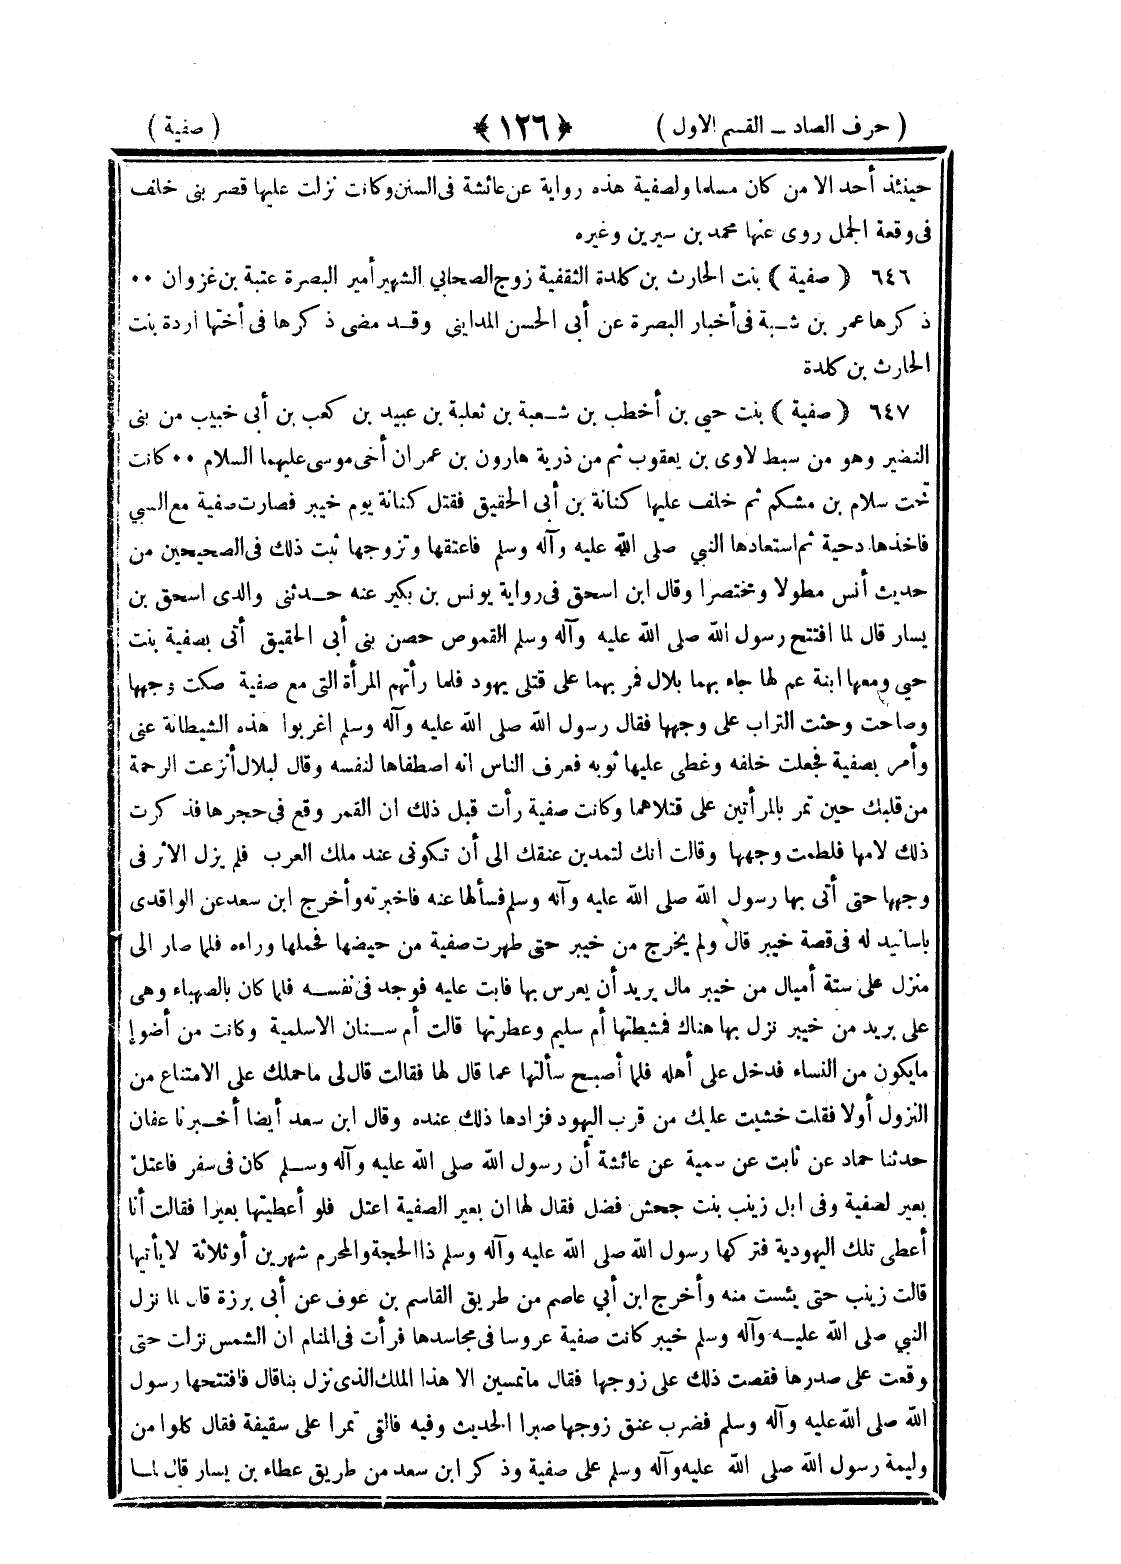 ( حرف الصاد ـ القسم الاول ) ﴿ ١٢٦ ﴾ ( صفية )
حينئذ أحد الا من كان مسلما ولصفية هذه رواية عن عائشة فى السنن وكانت نزلت عليها قصر بنى خلف
فى وقعة الجمل روى عنها محمد بن سيرين وغيره
٦٤٦ ( صفية ) بنت الحارث بن كلدة الثقفية زوج الصحابي الشهير أمير البصرة عتبة بن غزوان ٠٠
ذكرها عمر بن شبة فى أخبار البصرة عن أبى الحسن المداينى وقد مضى ذكرها فى أختها اردة بنت
الحارث بن كلدة
٦٤٧ ( صفية ) بنت حيي بن أخطب بن شعبة بن ثعلبة بن عبيد بن كعب بن أبى خبيب من بنى
النضير وهو من سبط لاوى بن يعقوب ثم من ذرية هارون بن عمران أخى موسى عليهما السلام ٠٠ كانت
تحت سلام بن مشكم ثم خلف عليها كنانة بن أبى الحقيق فقتل كنانة يوم خيبر فصارت صفية مع السبي
فاخذها دحية ثم استعادها النبي صلى الله عليه وآله وسلم فاعتقها وتزوجها ثبت ذلك فى الصحيحين من
حديث أنس مطولا ومختصرا وقال ابن اسحق فى رواية يونس بن بكير عنه حدثنى والدى اسحق بن
يسار قال لما افتتح رسول الله صلى الله عليه وآله وسلم القموص حصن بنى أبى الحقيق أتى بصفية بنت
حيي ومعها ابنة عم لها جاء بهما بلال فمر بهما على قتلى يهود فلما رأتهم المرأة التى مع صفية صكت وجهها
وصاحت وحثت التراب على وجهها فقال رسول الله صلى الله عليه وآله وسلم اغربوا هذه الشيطانة عنى
وأمر بصفية فجعلت خلفه وغطى عليها ثوبه فعرف الناس انه اصطفاها لنفسه وقال لبلال أنزعت الرحمة
من قلبك حين تمر بالمرأتين على قتلاهما وكانت صفية رأت قبل ذلك ان القمر وقع فى حجرها فذكرت
ذلك لامها فلطمت وجهها وقالت انك لتمدين عنقك الى أن تكونى عند ملك العرب فلم يزل الاثر فى
وجهها حتى أتى بها رسول الله صلى الله عليه وآله وسلم فسألها عنه فاخبرته وأخرج ابن سعد عن الواقدى
باسانيد له فى قصة خيبر قال ولم يخرج من خيبر حتى طهرت صفية من حيضها فحملها وراءه فلما صار الى
منزل على ستة أميال من خيبر مال يريد أن يعرس بها فابت عليه فوجد فى نفسه فلما كان بالصهباء وهى
على بريد من خيبر نزل بها هناك فمشطتها أم سليم وعطرتها قالت أم سنان الاسلمية وكانت من أضوإ
مايكون من النساء فدخل على أهله فلما أصبح سألتها عما قال لها فقالت قال لى ماحملك على الامتناع من
النزول أولا فقلت خشيت عليك من قرب اليهود فزادها ذلك عنده وقال ابن سعد أيضا أخبرنا عفان
حدثنا حماد عن ثابت عن سمية عن عائشة أن رسول الله صلى الله عليه وآله وسلم كان فى سفر فاعتل
بعير لصفية وفى ابل زينب بنت جحش فضل فقال لها ان بعير الصفية اعتل فلو أعطيتها بعيرا فقالت أنا
أعطى تلك اليهودية فتركها رسول الله صلى الله عليه وآله وسلم ذا الحجة والمحرم شهرين أو ثلاثة لا يأتيها
قالت زينب حتى يئست منه وأخرج ابن أبي عاصم من طريق القاسم بن عوف عن أبى برزة قال لما نزل
النبي صلى الله عليه وآله وسلم خيبر كانت صفية عروسا فى مجاسدها فرأت فى المنام ان الشمس نزلت حتى
وقعت على صدرها فقصت ذلك على زوجها فقال ماتمسين الا هذا الملك الذى نزل بنا قال فافتتحها رسول
الله صلى الله عليه وآله وسلم فضرب عنق زوجها صبرا الحديث وفيه فالقى تمرا على سقيفة فقال كلوا من
وليمة رسول الله صلى الله عليه وآله وسلم على صفية وذكر ابن سعد من طريق عطاء بن يسار قال لما